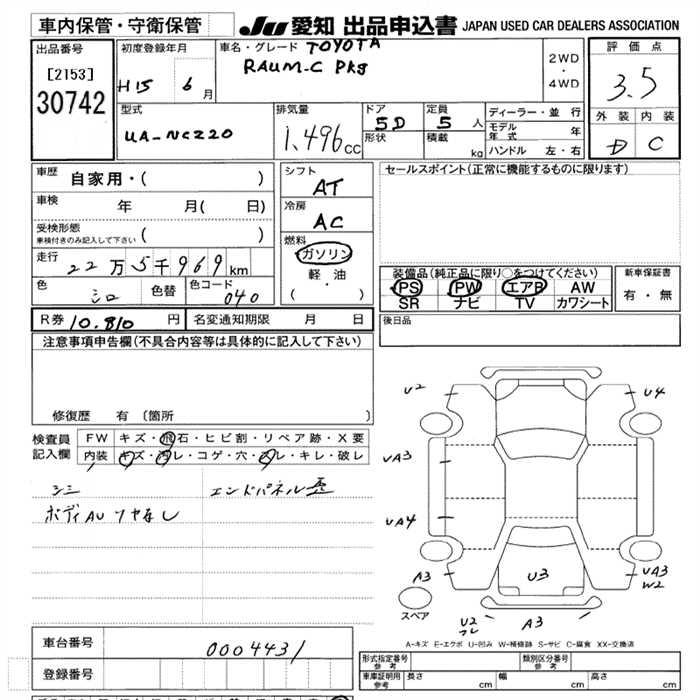 車内保管・守衛保管 JU 愛知 出品申込書 JAPAN USED CAR DEALERS ASSOCIATION
出品番号 [2153] 30742
初度登録年月 H15 6月
車名・グレード TOYOTA
RAUM-C Pkg
2WD・4WD
評価点 3.5
外装 D 内装 C
型式 UA-NCZ20
排気量 1,496cc
ドア 5D 定員 5人
形状 積載 kg
ディーラー・並行
モデル年式 年
ハンドル 左・右
車歴 自家用・( )
車検 年 月( 日)
受検形態 ( )
車検付きのみ記入して下さい
走行 22万5千969km
色 シロ 色替 色コード 040
シフト AT
冷房 AC
燃料 ガソリン
軽油
( ・ )
セールスポイント(正常に機能するものに限ります)
装備品(純正品に限り○をつけてください)
PS PW エアB AW
SR ナビ TV カワシート
新車保証書
有・無
R券 10.810円 名変通知期限 月 日
後日品
注意事項申告欄(不具合内容等は具体的に記入して下さい)
修復歴 有〔箇所 〕
検査員記入欄
FW キズ・飛石・ヒビ割・リペア跡・X要
内装 キズ・汚レ・コゲ・穴・スレ・キレ・破レ
シミ エンドパネル歪
ボディAU ツヤなし
U2 U4
UA3
UA4
A3 U3 UA3
W2
スペア
U2 A3
A-キズ E-エクボ U-凹み W-補修跡 S-サビ C-腐食 XX-交換済
車台番号 0004431
登録番号
形式指定番号 参考 類別区分番号 参考
車庫証明用 参考 長さ cm 幅 cm 高さ cm